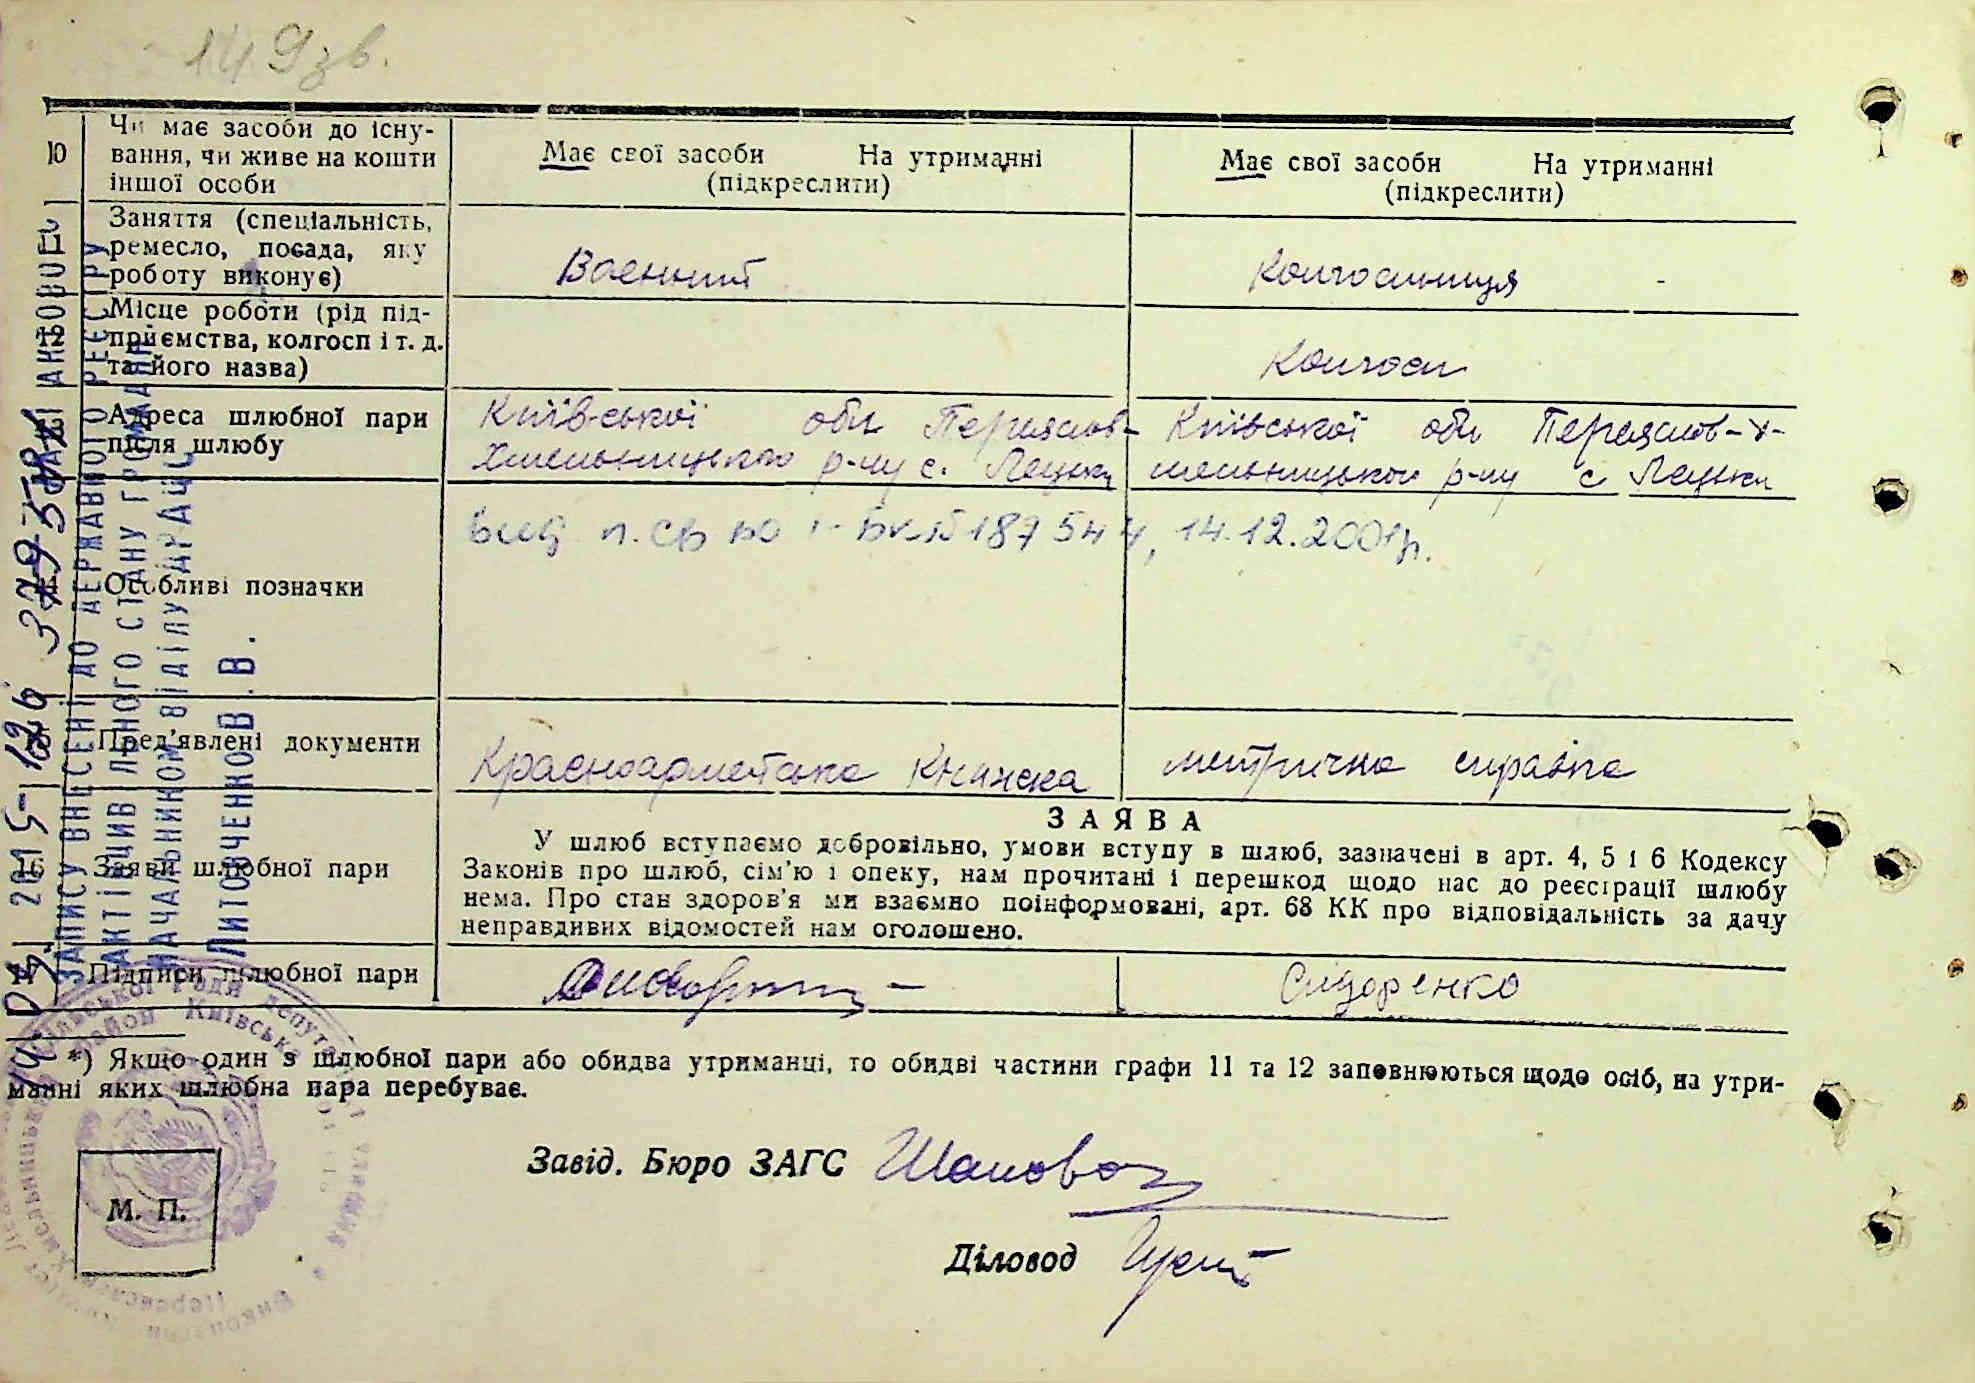 149 зв.
10
Чи має засоби до існу-
вання, чи живе на кошти
іншої особи
Має свої засоби На утриманні
(підкреслити)
Має свої засоби На утриманні
(підкреслити)
11
Заняття (спеціальність,
ремесло, посада, яку
роботу виконує)
Военний
Колгоспниця
12
Місце роботи (рід під-
приємства, колгосп і т. д.
та його назва)
Колгосп
Адреса шлюбної пари
після шлюбу
Київської обл Переяслов-
Хмельницького р-ну с. Лецьки
Київської обл Переяслов-Х-
мельницького р-ну с Лецьки
Особливі позначки
вид п. св по І-БК № 187544, 14.12.2001р.
Пред'явлені документи
Красноармейська Книжка
метрична справка
16
Заяви шлюбної пари
ЗАЯВА
У шлюб вступаємо добровільно, умови вступу в шлюб, зазначені в арт. 4, 5 і 6 Кодексу
Законів про шлюб, сім'ю і опеку, нам прочитані і перешкод щодо нас до реєстрації шлюбу
нема. Про стан здоров'я ми взаємно поінформовані, арт. 68 КК про відповідальність за дачу
неправдивих відомостей нам оголошено.
17
Підписи шлюбної пари
Сидоренко
*) Якщо один з шлюбної пари або обидва утриманці, то обидві частини графи 11 та 12 заповнюються щодо осіб, на утри-
манні яких шлюбна пара перебуває.
Завід. Бюро ЗАГС Шаповал
Діловод
М. П.
ДАНІ АКТОВОГО
ЗАПИСУ ВНЕСЕНІ ДО ДЕРЖАВНОГО РЕЄСТРУ
АКТІВ ЦИВІЛЬНОГО СТАНУ ГРОМАДЯН
НАЧАЛЬНИКОМ ВІДІЛУ ДРАЦС
Литовченко В.В.